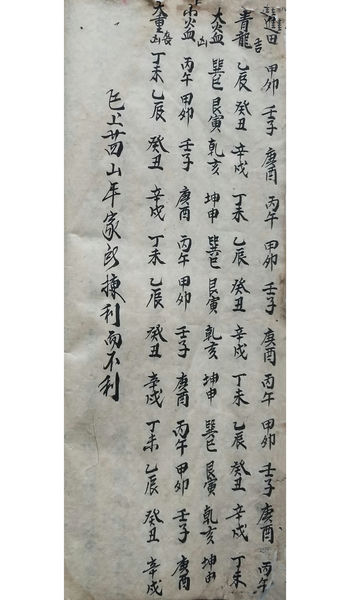 進田 甲卯 壬子 庚酉 丙午 甲卯 壬子 庚酉 丙午 甲卯 壬子 庚酉 丙午
青龍吉 乙辰 癸丑 辛戌 丁未 乙辰 癸丑 辛戌 丁未 乙辰 癸丑 辛戌 丁未
大凶 巽巳 艮寅 乾亥 坤申 巽巳 艮寅 乾亥 坤申 巽巳 艮寅 乾亥 坤申
小 丙午 甲卯 壬子 庚酉 丙午 甲卯 壬子 庚酉 丙午 甲卯 壬子 庚酉
大重喪凶 丁未 乙辰 癸丑 辛戌 丁未 乙辰 癸丑 辛戌 丁未 乙辰 癸丑 辛戌
已上廿四山年家揀利而不利